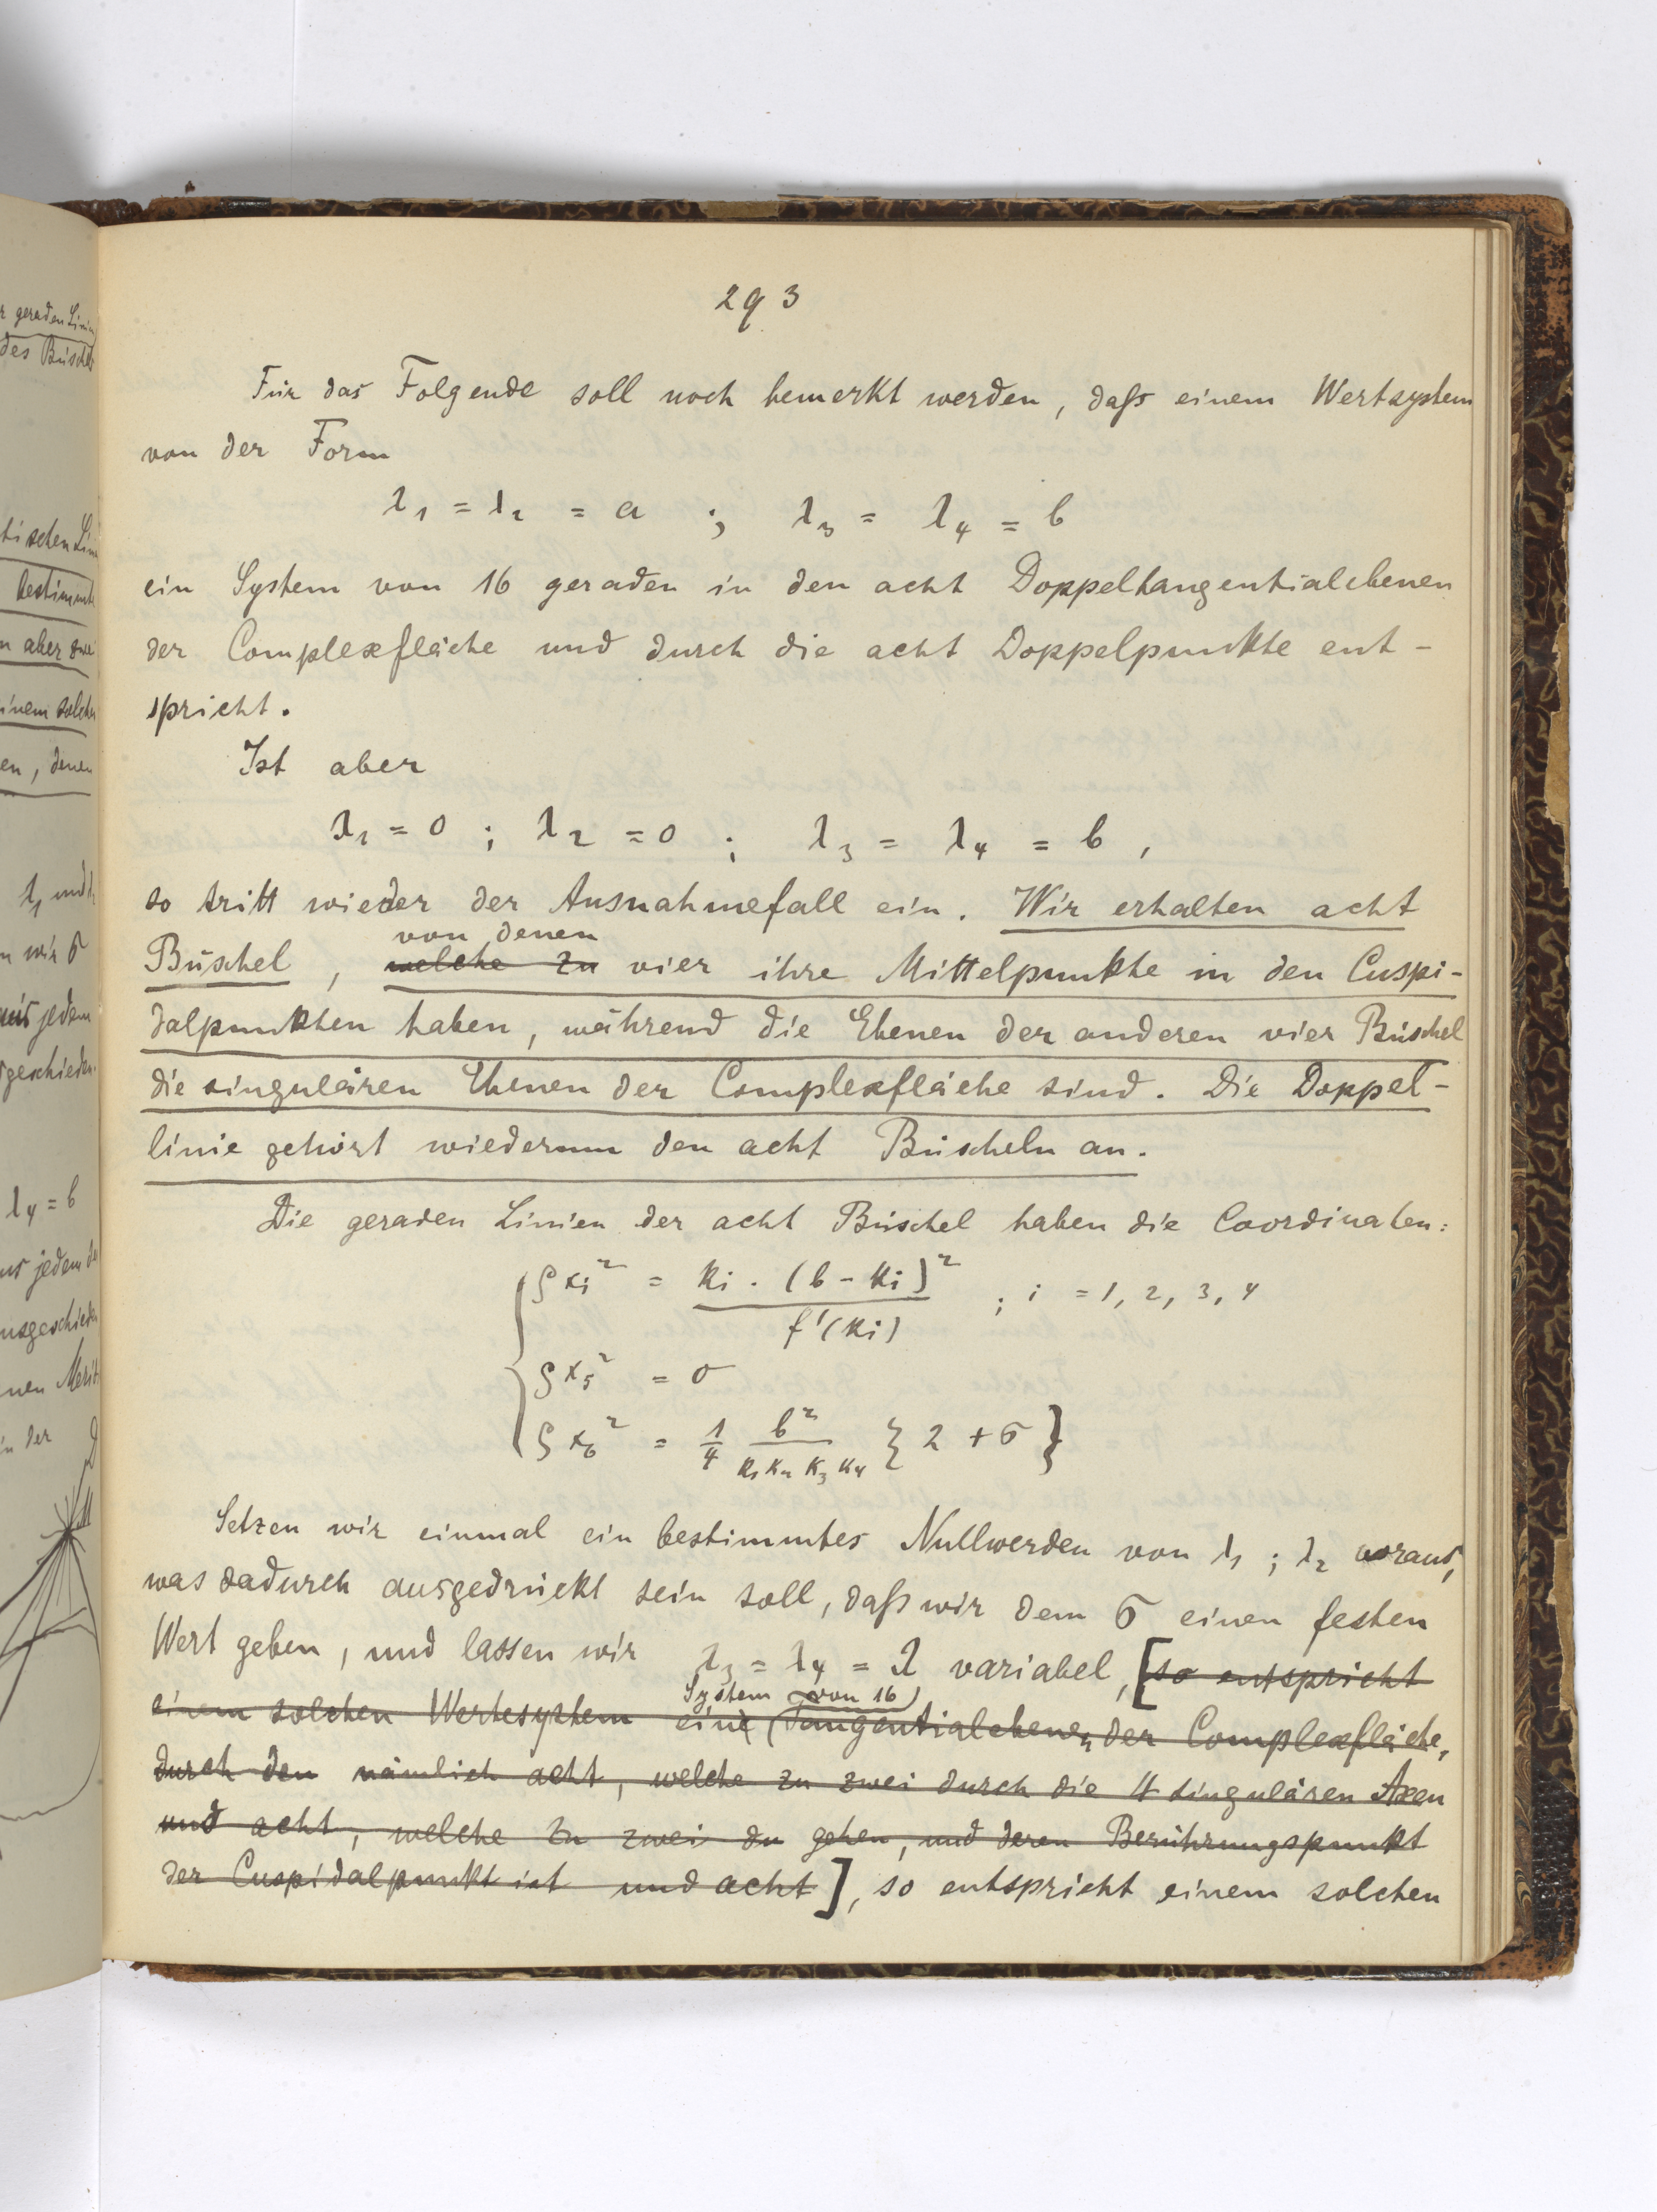 293
Für das Folgende soll noch bemerkt werden, daß einem Wertsystem
von der Form
λ₁ = λ₂ = a ; λ₃ = λ₄ = b
ein System von 16 geraden in den acht Doppeltangentialebenen
der Complexfläche und durch die acht Doppelpunkte ent-
spricht.
Ist aber
λ₁ = 0 ; λ₂ = 0 ; λ₃ = λ₄ = b ,
so tritt wieder der Ausnahmefall ein. Wir erhalten acht
von denen
Büschel , welche zu vier ihre Mittelpunkte in den Cuspi-
dalpunkten haben, während die Ebenen der anderen vier Büschel
die singulären Ebenen der Complexfläche sind. Die Doppel-
linie gehört wiederum den acht Büscheln an.
Die geraden Linien der acht Büschel haben die Coordinaten:
ρxᵢ² = kᵢ . (b - kᵢ)² / f'(kᵢ) ; i = 1, 2, 3, 4
ρx₅² = σ
ρx₆² = 1/4 b² / k₁ k₂ k₃ k₄ { 2 + σ }
Setzen wir einmal ein bestimmtes Nullwerden von λ₁ ; λ₂ voraus,
was dadurch ausgedrückt sein soll, daß wir dem σ einen festen
Wert geben, und lassen wir λ₃ = λ₄ = λ variabel, [so entspricht
System von 16
einem solchen Wertesystem eine (Tangentialebenen der Complexfläche,
durch den nämlich acht, welche zu zwei durch die 4 singulären Axen
und acht, welche zu zwei du gehen, und deren Berührungspunkt
der Cuspidalpunkt ist und acht], so entspricht einem solchen
r geraden Linien
des Büschel
tischen Lin
bestimmt
n aber zwei
einem solchen
en, denen
λ₁ und
n wir σ
aus jedem
sgeschieden.
λ₄ = b
us jedem de
ausgeschieden
nen
in der